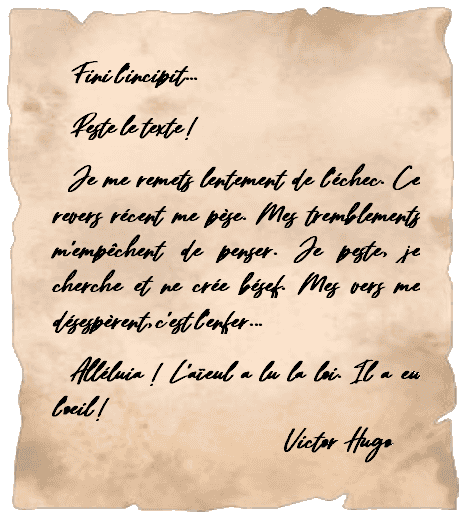 Fini l'incipit...
Reste le texte !
Je me remets lentement de l'échec. Ce
revers récent me pèse. Mes tremblements
m'empêchent de penser. Je peste, je
cherche et ne crée bésef. Mes vers me
désespèrent, c'est l'enfer...
Alléluia ! L'aïeul a lu la loi. Il a eu
l'oeil !
Victor Hugo